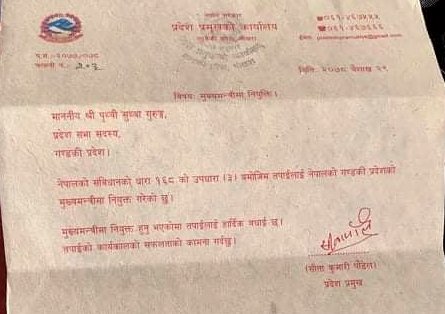 प्रदेश प्रमुखको कार्यालय
प.सं.-२०७७/०७८
चलानी नं.
मिति: २०७८ बैशाख २९
विषय: मुख्यमन्त्रीमा नियुक्ति।
माननीय श्री पृथ्वी सुब्बा गुरुङ,
प्रदेश सभा सदस्य,
गण्डकी प्रदेश।
नेपालको संबिधानको धारा १६८ को उपधारा (३) बमोजिम तपाईंलाई नेपालको गण्डकी प्रदेशको
मुख्यमन्त्रीमा नियुक्त गरेको छु।
मुख्यमन्त्रीमा नियुक्त हुनु भएकोमा तपाईंलाई हार्दिक बधाई छ।
तपाईंको कार्यकालको सफलताको कामना गर्दछु।
(सीता कुमारी पौडेल)
प्रदेश प्रमुख